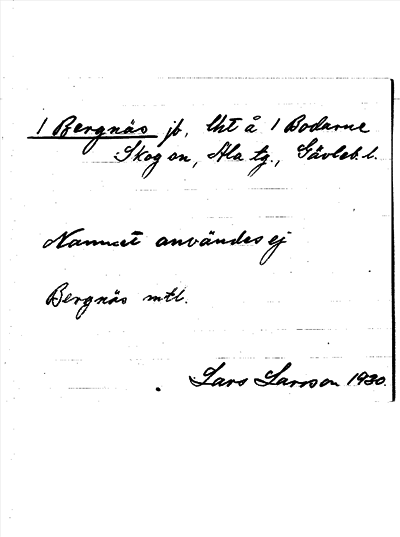 1 Bergnäs jb, lht å 1 Bodarne
Skog sn, Ala tg., Gävleb. l.
Namnet användes ej
Bergnäs mtl.
Lars Larsson 1930.